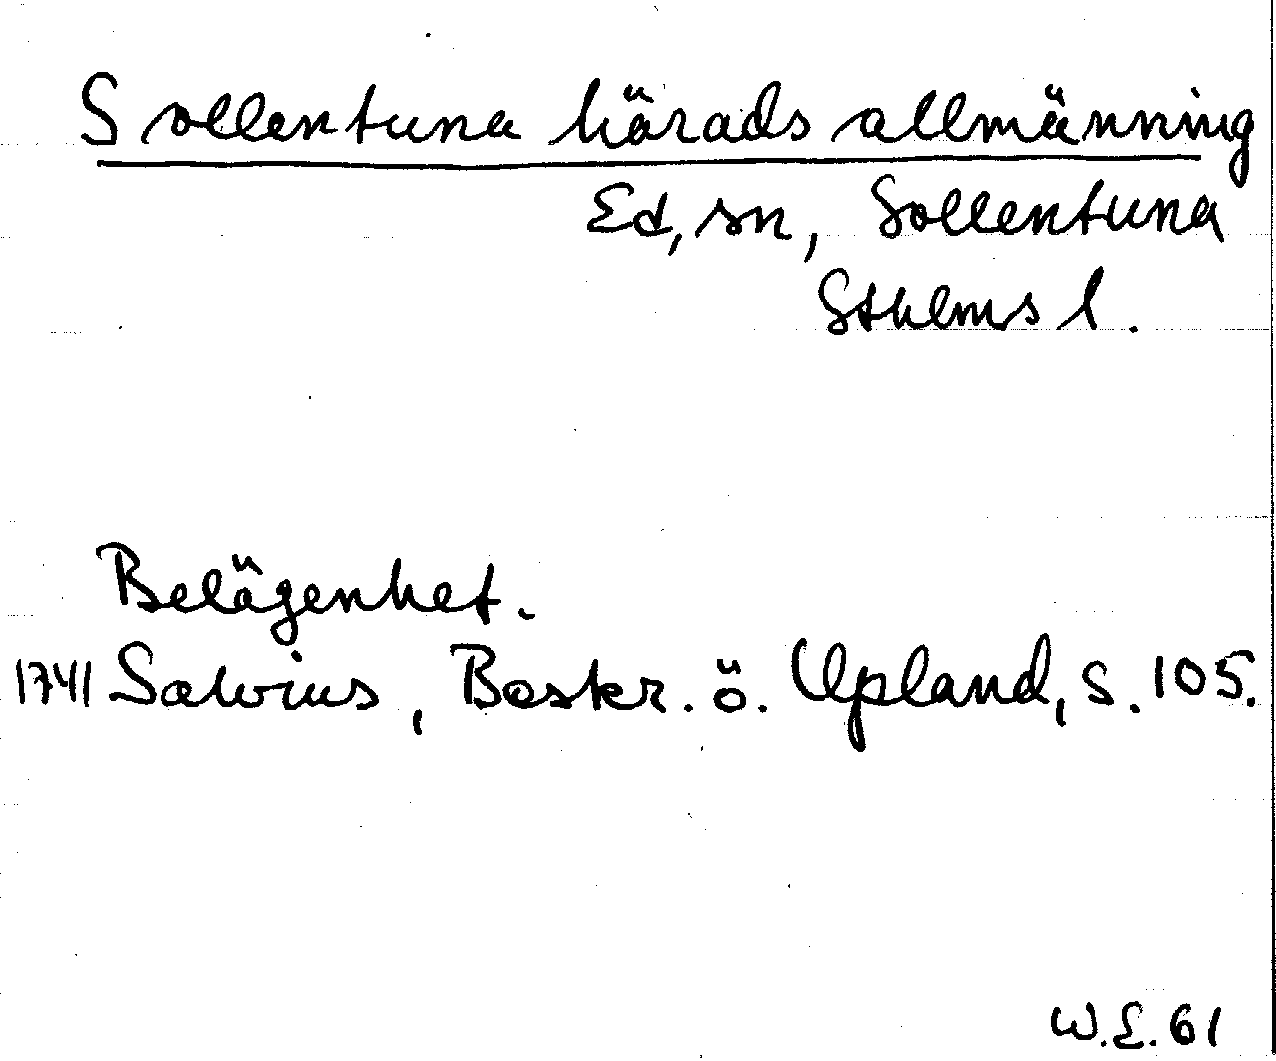 Sollentuna härads allmänning
Ed, sn, Sollentuna
Sthlms l.
Belägenhet.
1741 Salvius, Beskr. ö. Upland, s. 105.
W.E. 61